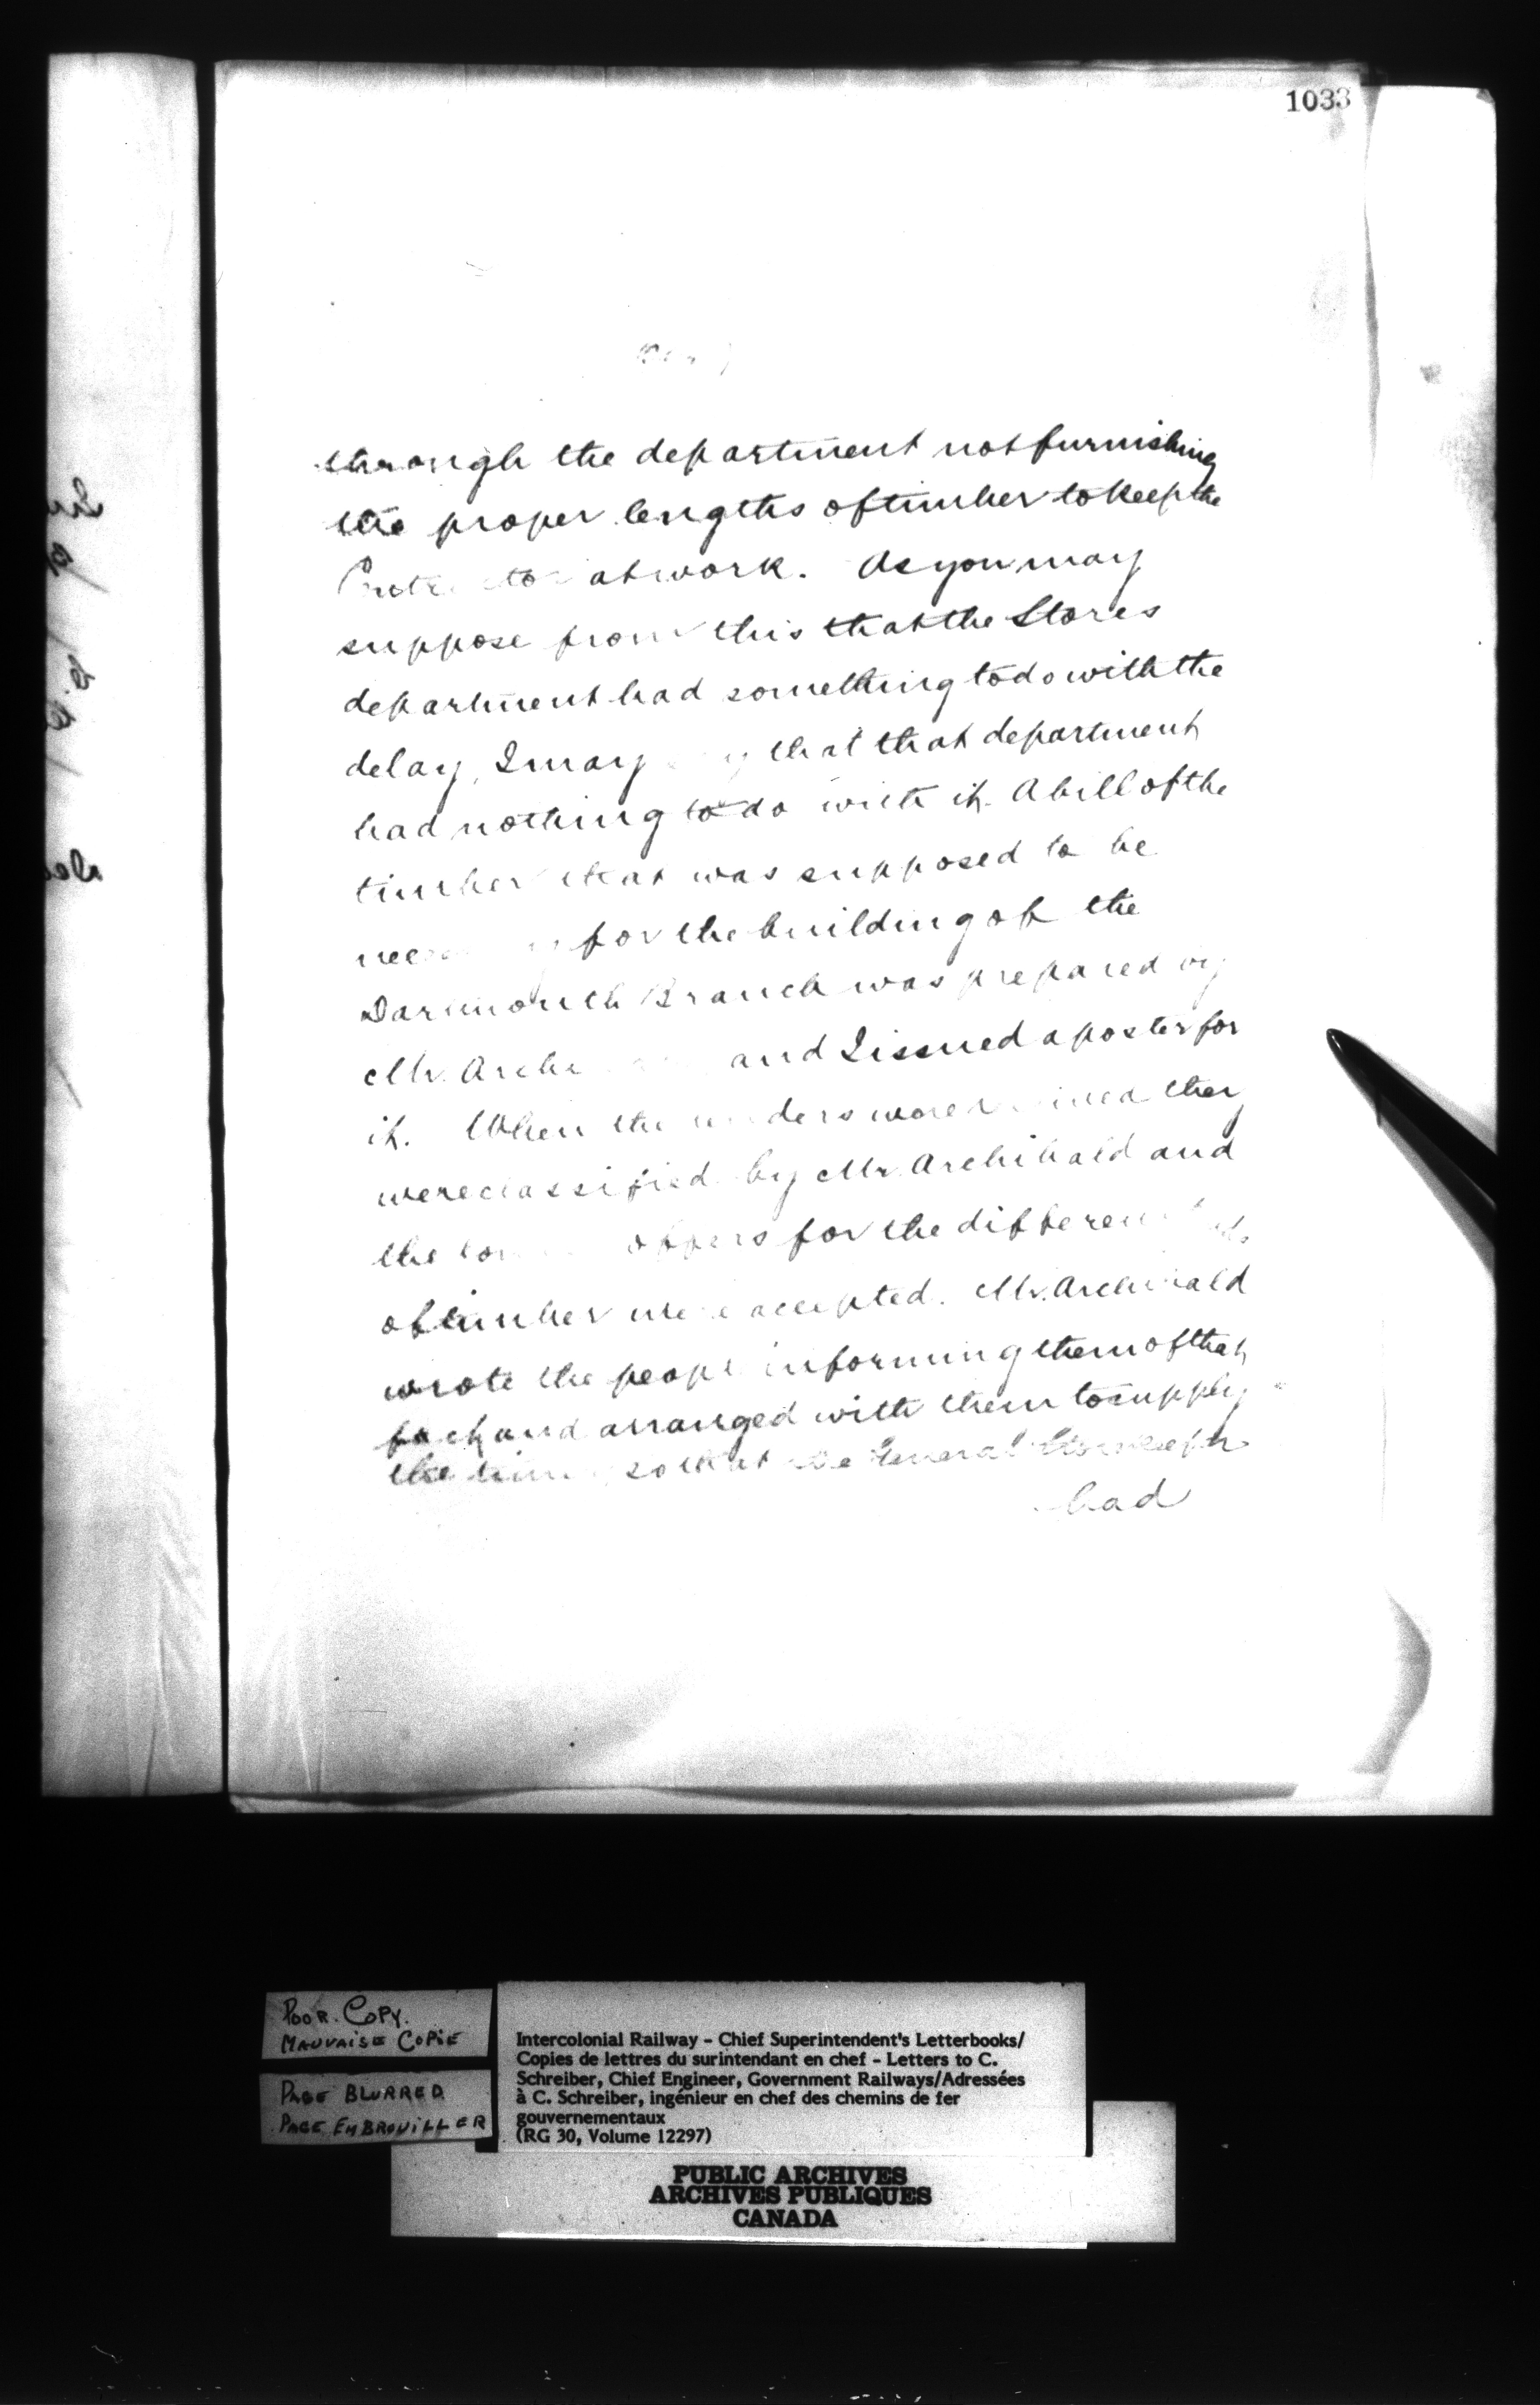 1033
through the department not furnishing
the proper lengths of timber to keep the
at work. As you may
suppose from this that the Stores
department had something to do with the
delay, I may that that department
had nothing to do with it. A bill of the
timber that was supposed to be
for the building of the
Dartmouth Branch was prepared by
Mr. and I issued a poster for
it. When the tenders were they
were classified by Mr. Archibald and
the offers for the different
of timber were accepted. Mr. Archibald
wrote the people informing them of that
fact and arranged with them to supply
the so that the General Storekeeper
had
POOR COPY.
MAUVAISE COPIE
PAGE BLURRED
PAGE EMBROUILLER
Intercolonial Railway - Chief Superintendent's Letterbooks/
Copies de lettres du surintendant en chef - Letters to C.
Schreiber, Chief Engineer, Government Railways/Adressées
à C. Schreiber, ingénieur en chef des chemins de fer
gouvernementaux
(RG 30, Volume 12297)
PUBLIC ARCHIVES
ARCHIVES PUBLIQUES
CANADA